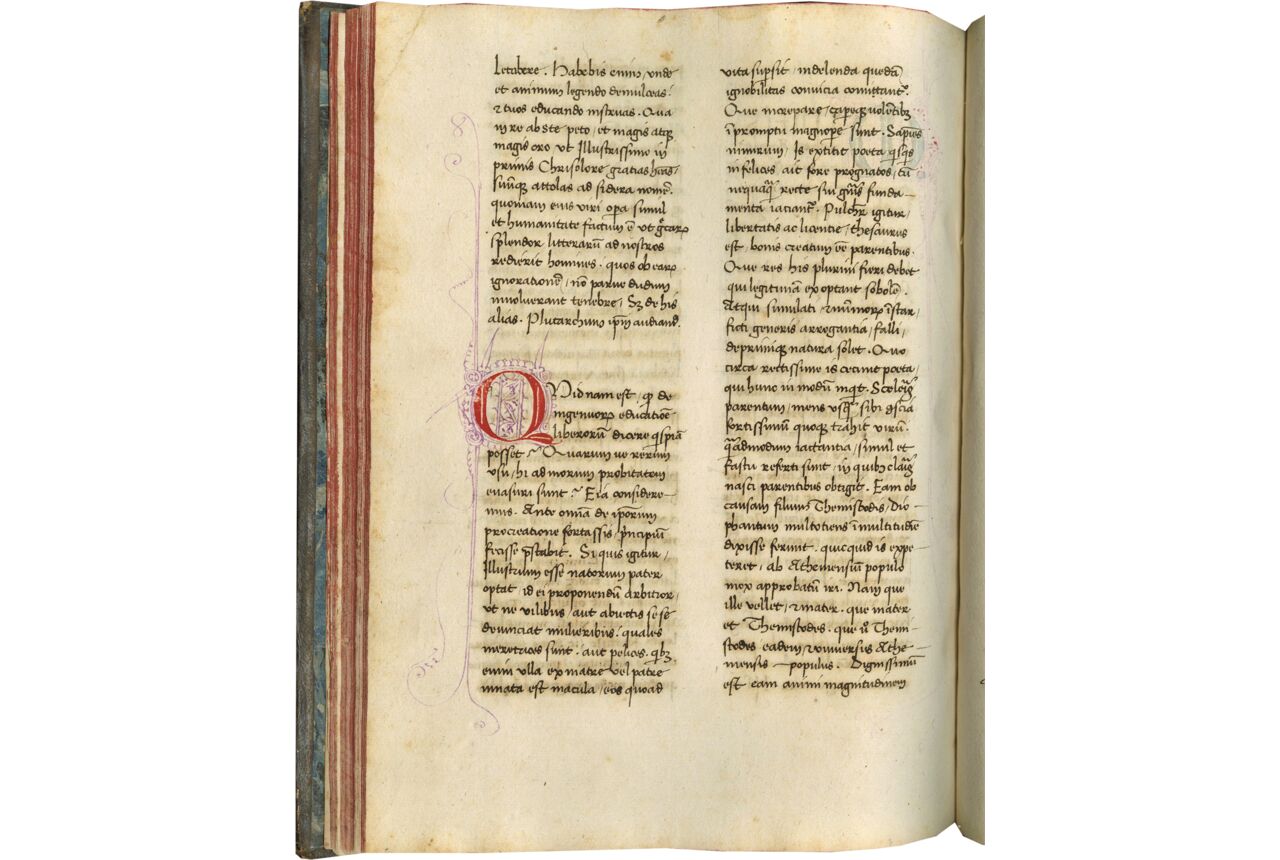 letabere. Habebis enim, unde
et animum legendo demulceas:
& tuos educando instruas. Qua
in re abs te peto, et magis atq;
magis oro ut Illustrissimo in
primis Chrisolore gratias has,
sumq; attolas ad sidera nomē.
quoniam eius viri opa simul
et humanitate factum ē ut gcaꝝ
splendor litterarū ad nostros
redierit homines. quos ob eaꝝ
ignorationē, nō parue dudum
inuoluerant tenebre, Sꝫ de his
alias. Plutarchum ipm audiam9.
QVid nam est, qd de
ingenuoꝝ educatiōe
liberorū dicere qspiā
posset? Quarum ue rerum
usu, hi ad morum probitatem
euasuri sunt? Eia considere-
mus. Ante omīa de ipsorum
procreatione fortassis, pncipiū
fecisse pstabit. Si quis igitur,
Illustrium esse natorum pater
optat, id ei proponendū arbitror,
ut ne uilibus, aut abiectis sese
deuinciat mulieribus: quales
meretrices sunt. aut pelices. qbꝫ
enim ulla ex matre uel patre
innata est macula, eos quoad
vita supsit, indelenda quedā
ignobilitas conuicia comittant.
Que increpare, carpeq; uolētibꝫ
ī promptu magnopē sunt. Sapiēs
nimirum, Is extitit poeta qsqs
infelices ait fore prognatos, cū
nequaq recte sui gnīs funda-
menta iaciant. Pulcher igitur,
libertatis ac licentie, thesaurus
est bonis creatum eē parentibus.
Que res his plurimi fieri debet
qui legitimā exoptant sobolē.
Atqui simulati, & nummoꝝ īstar,
ficti generis arrogantia, falli,
deprimiq; natura solet. Quo
circa rectissime is cecinit poeta,
qui hunc in modū inqt. Scelerūq;
parentum, mens usq sibi gscia
fortissimū quoq; trahit uirū:
qadmodum iactantia, simul et
fastu referti sunt, in quibus claris
nasci parentibus obtigit. Eam ob
causam filium Themistoclis, Dio-
phantum multotiens ī multitudīe
dixisse ferunt. quicquid is expe-
teret, ab Atheniensium populo
mox approbatū iri. Nam que
ille uellet, & mater. que mater
et Themistocles. que ū Themi-
stocles eadem & uniuersus Athe-
niensis populus. Dignissimū
est eam animi magnitudinem